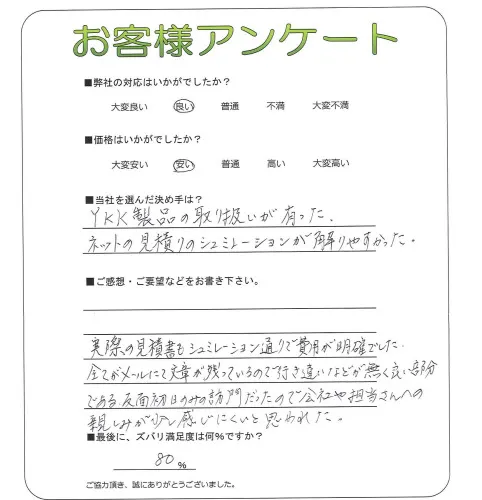 お客様アンケート
■弊社の対応はいかがでしたか？
大変良い 良い 普通 不満 大変不満
■価格はいかがでしたか？
大変安い 安い 普通 高い 大変高い
■当社を選んだ決め手は？
YKK製品の取り扱いが有った.
ネットの見積りのシュミレーションが解りやすかった。
■ご感想・ご要望などをお書き下さい。
実際の見積書もシュミレーション通りで費用が明確でした.
全てがメールにて文章が残っているので行き違いなどが無く良い部分
である.反面初日のみの訪問だったので会社や担当さんへの
親しみが少し感じにくいと思われた。
■最後に、ズバリ満足度は何％ですか？
80 %
ご協力頂き、誠にありがとうございました。